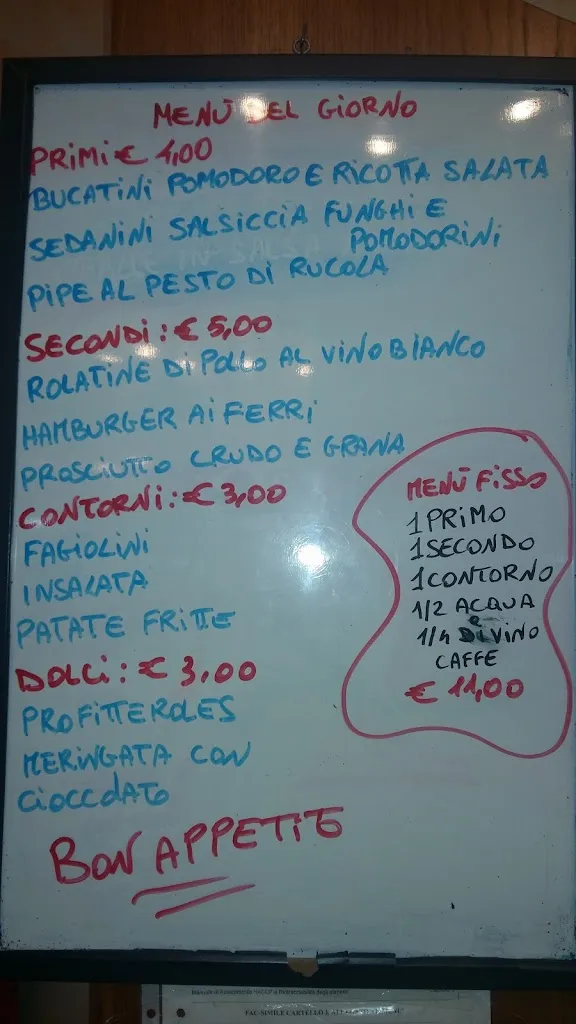 MENÙ DEL GIORNO
PRIMI € 4,00
BUCATINI POMODORO E RICOTTA SALATA
SEDANINI SALSICCIA FUNGHI E
POMODORINI
PIPE AL PESTO DI RUCOLA
SECONDI: € 5,00
ROLATINE DI POLLO AL VINO BIANCO
HAMBURGER AI FERRI
PROSCIUTTO CRUDO E GRANA
CONTORNI: € 3,00
FAGIOLINI
INSALATA
PATATE FRITTE
DOLCI: € 3,00
PROFITTEROLES
MERINGATA CON
CIOCCOLATO
BON APPETIT
MENÙ FISSO
1 PRIMO
1 SECONDO
1 CONTORNO
1/2 ACQUA
1/4 DI VINO
CAFFE
€ 11,00
FAC-SIMILE CARTELLO